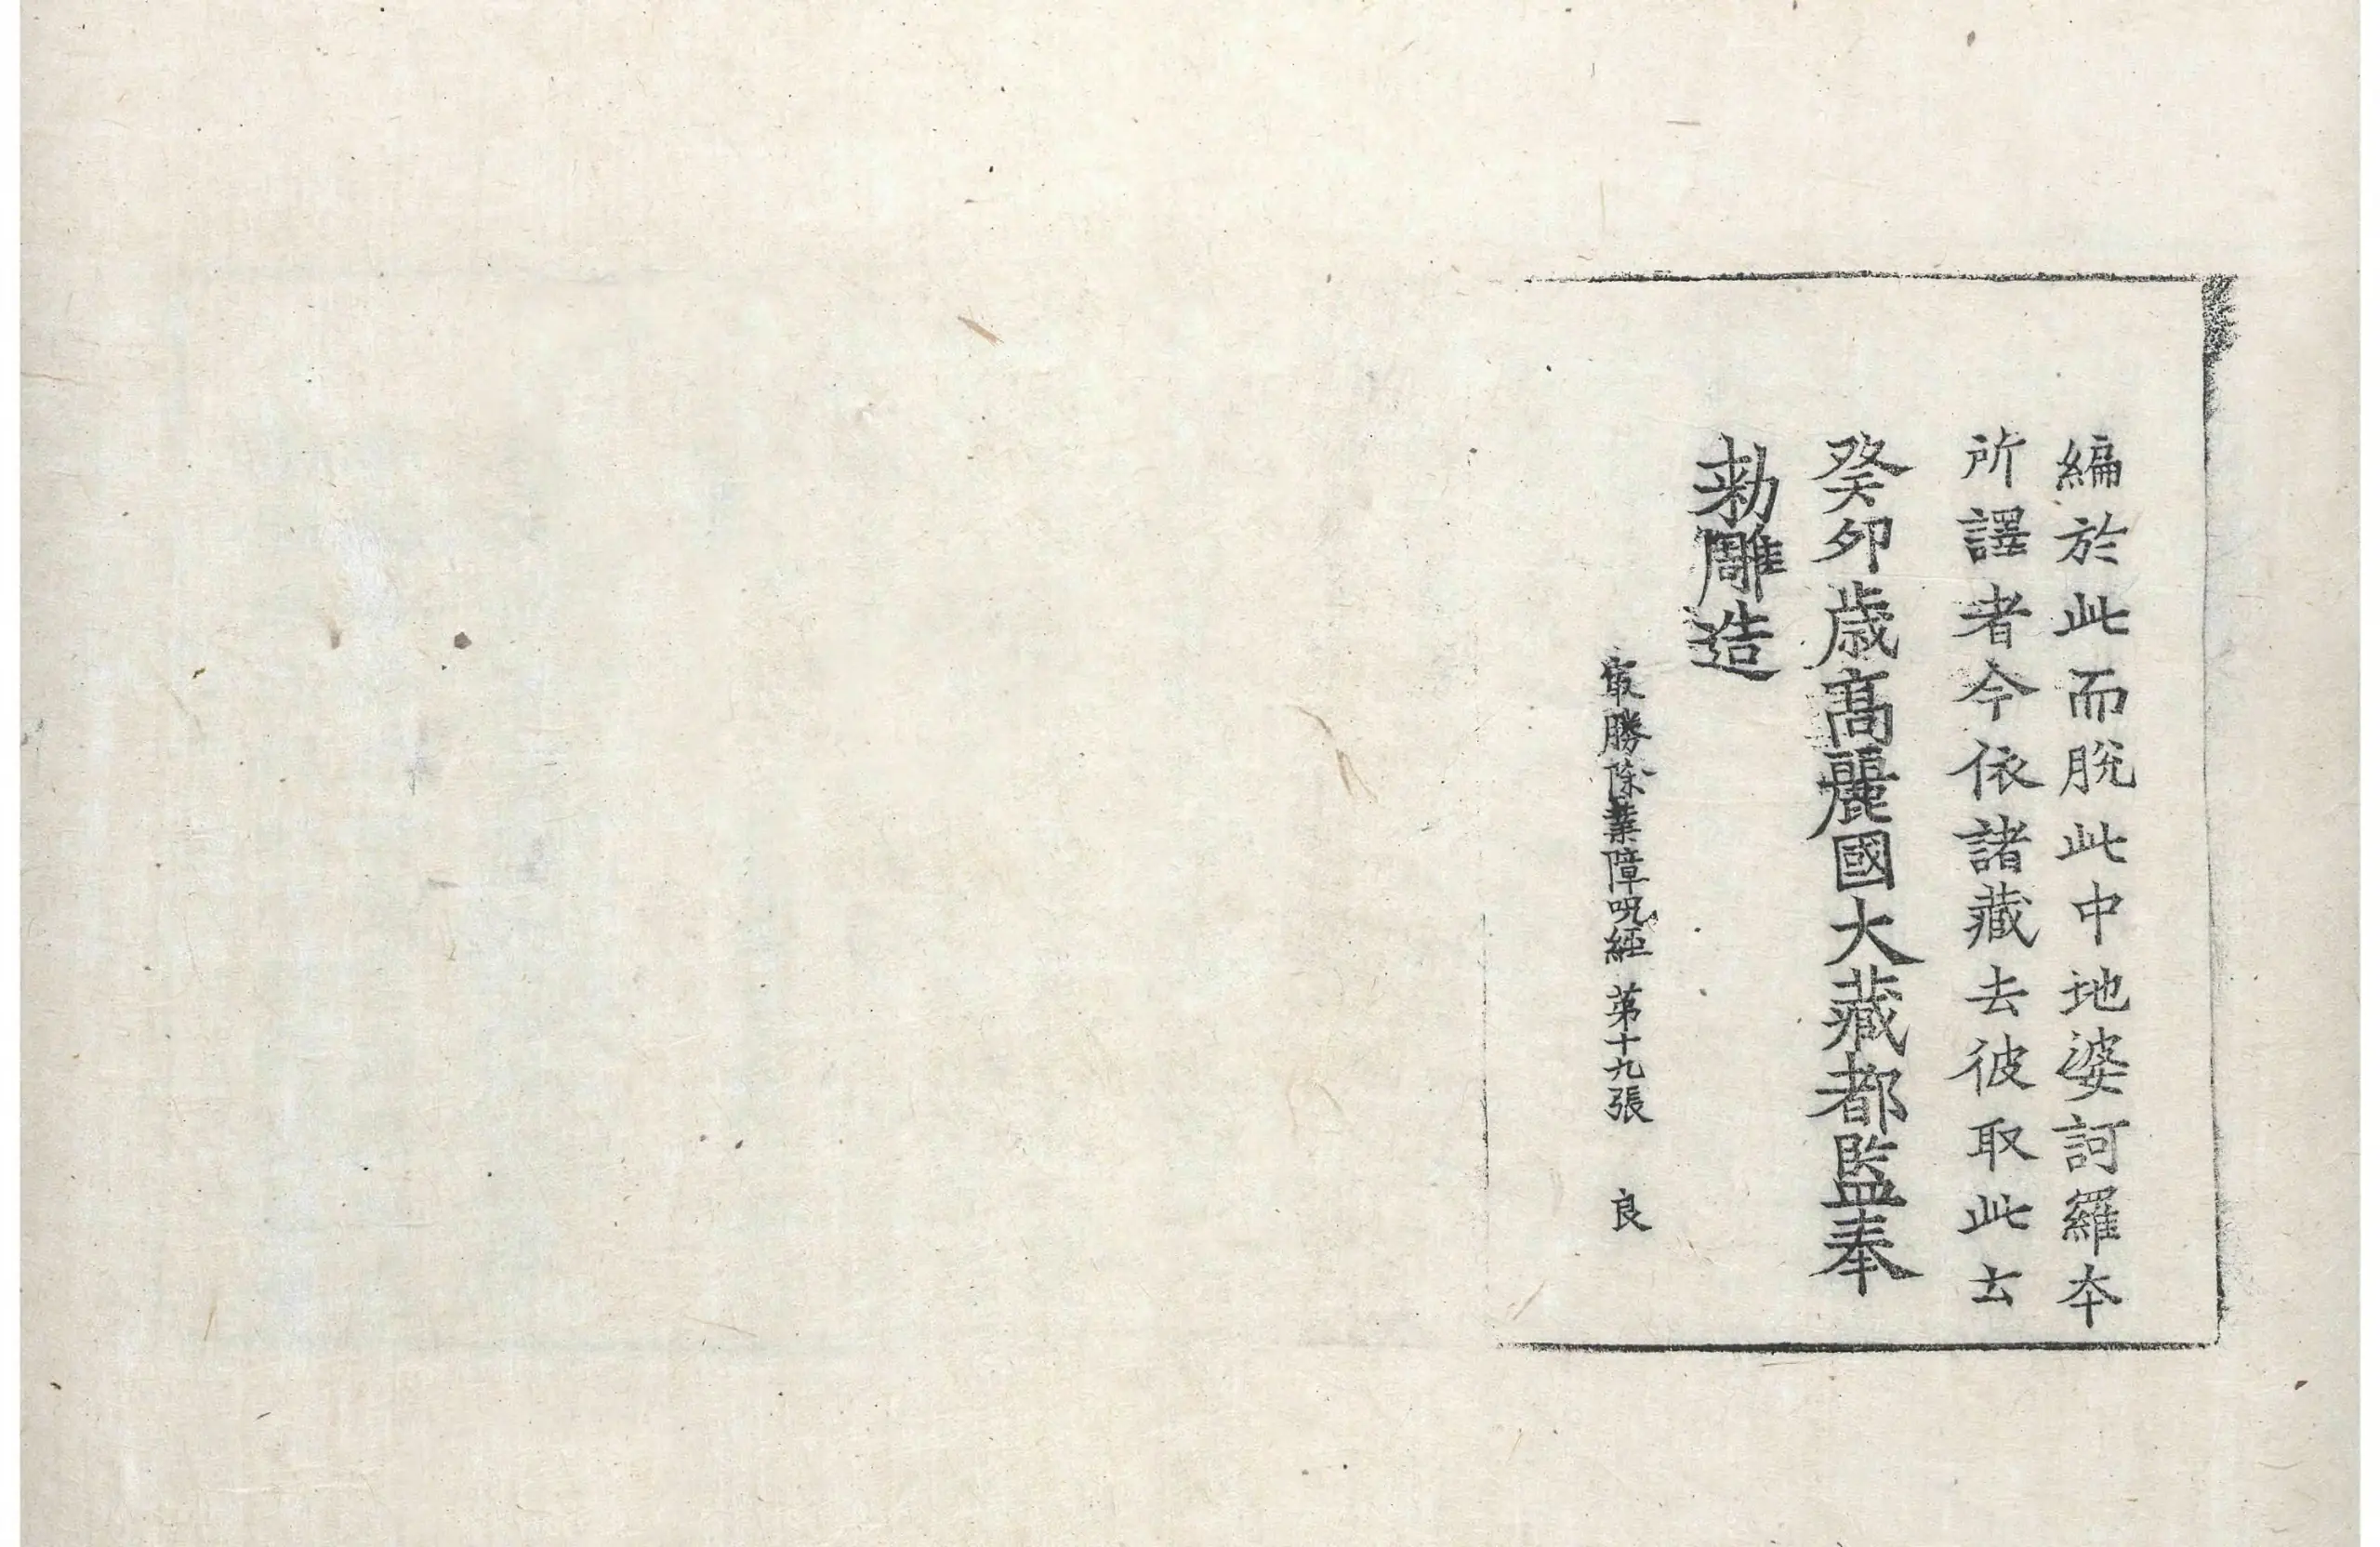 編於此而脫此中地婆訶羅夲
所譯者今依諸藏去彼取此云
癸卯歲高麗國大藏都監奉
勑雕造
㝡勝除業障呪經 第十九張 良